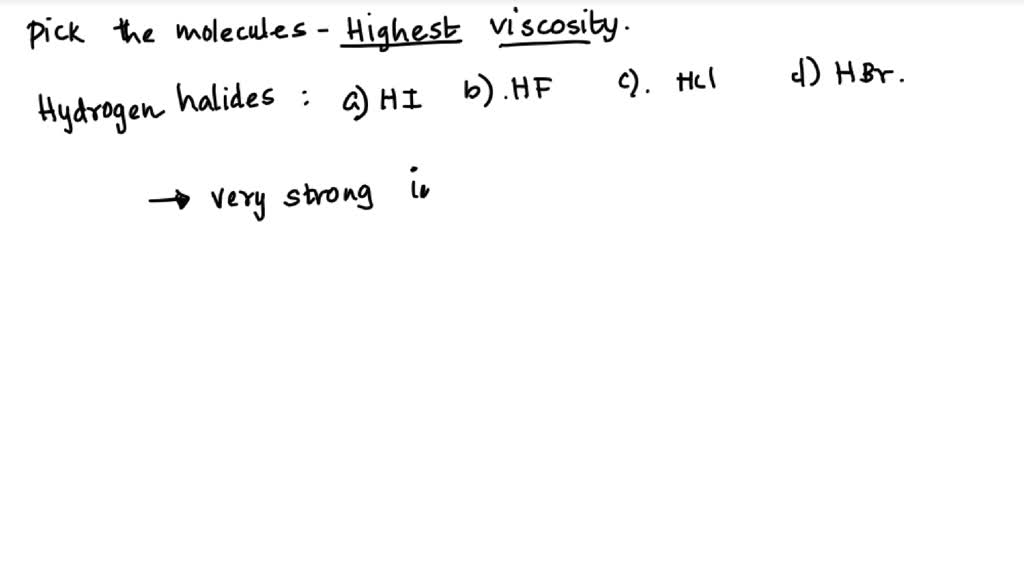 Pick the molecules - Highest viscosity.
Hydrogen halides : a) HI b). HF c). HCl d) HBr.
→ very strong in